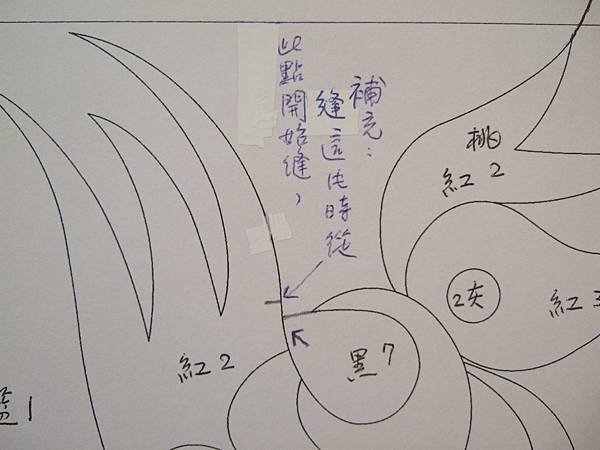 補充：
縫這片時從
此點開始縫，
桃
紅2
2灰
紅3
黑7
紅2
藍1